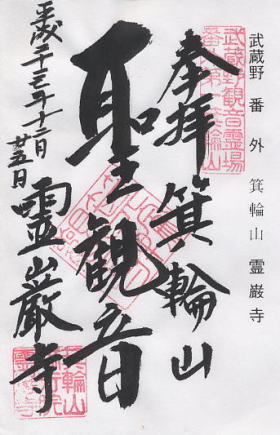 武蔵野 番外 箕輪山 霊巌寺
武蔵野観音霊場
番外 箕輪山
奉拝 箕輪山
聖観音
霊巌寺
平成二十三年十二月
廿五日
箕輪山